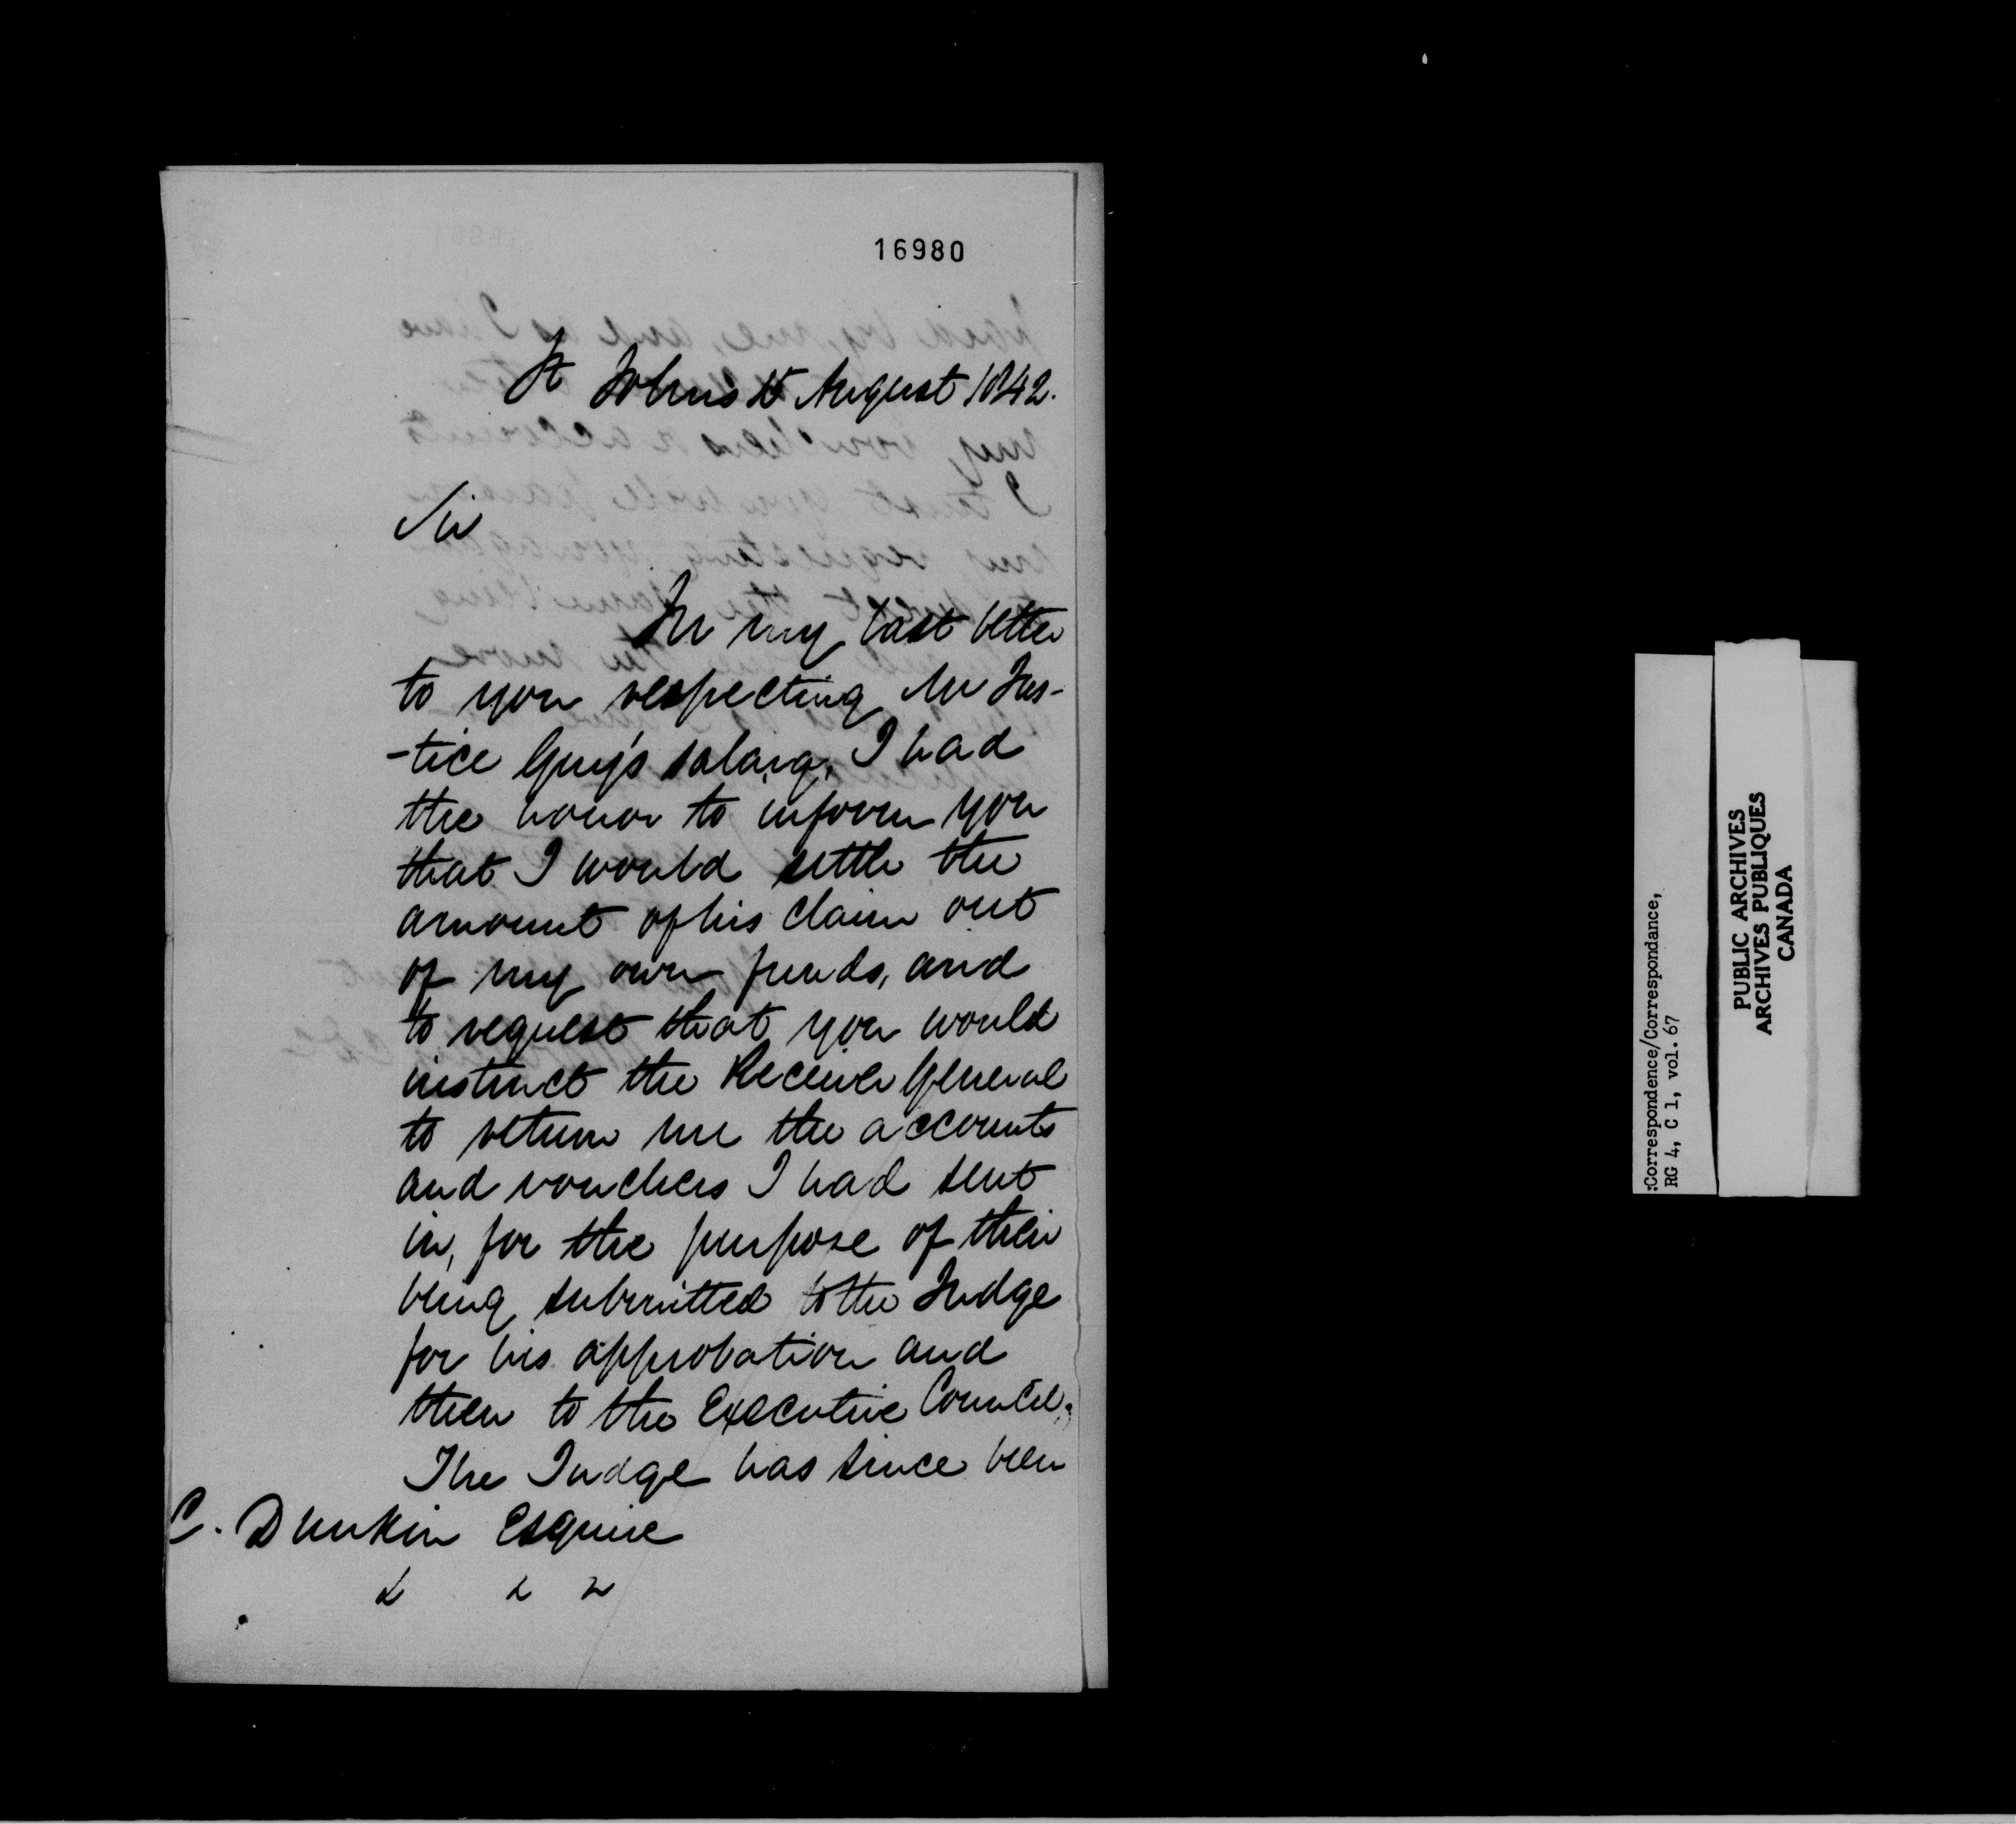 16980
St Johns 15 August 1842.
Sir
In my last letter
to you respecting Mr Jus-
-tice Guy's salary, I had
the honor to inform you
that I would settle the
amount of his claim out
of my own funds, and
to request that you would
instruct the Receiver General
to return me the accounts
and vouchers I had sent
in, for the purpose of their
being submitted to the Judge
for his approbation and
then to the Executive Council.
The Judge has since been
C. Dunkin Esquire
:Correspondence/Correspondance,
RG 4, C 1, vol. 67
PUBLIC ARCHIVES
ARCHIVES PUBLIQUES
CANADA